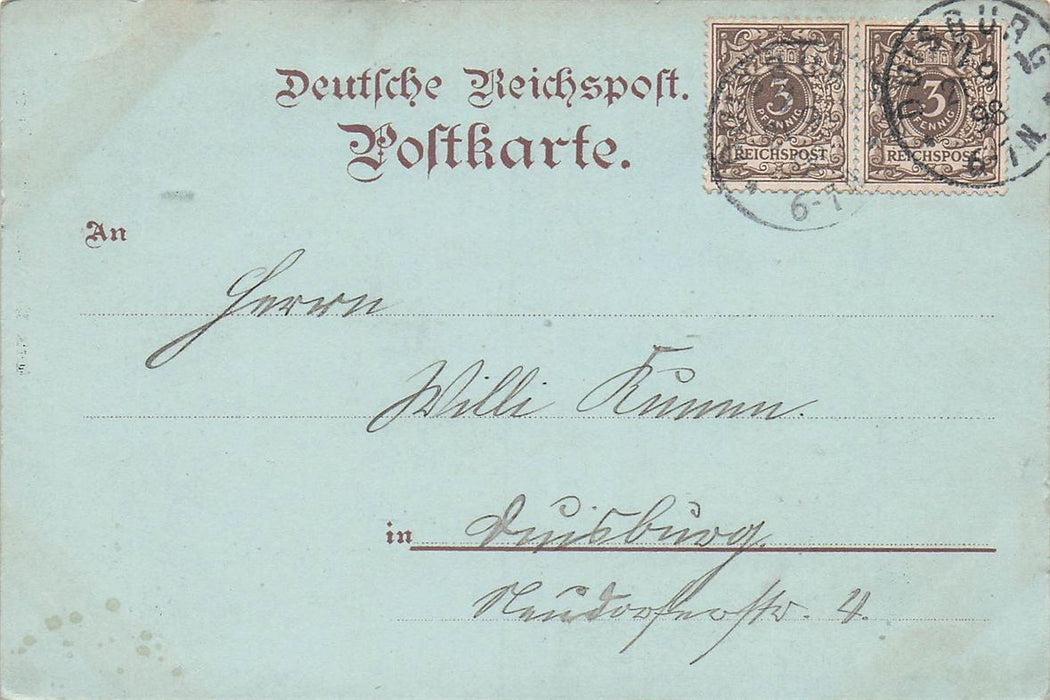 Deutsche Reichspost.
Postkarte.
3 PFENNIG REICHSPOST
3 PFENNIG REICHSPOST
DUISBURG
98
6-7N
6-7
An
Herrn
Willi
in Duisburg.
Neudorferstr. 4.